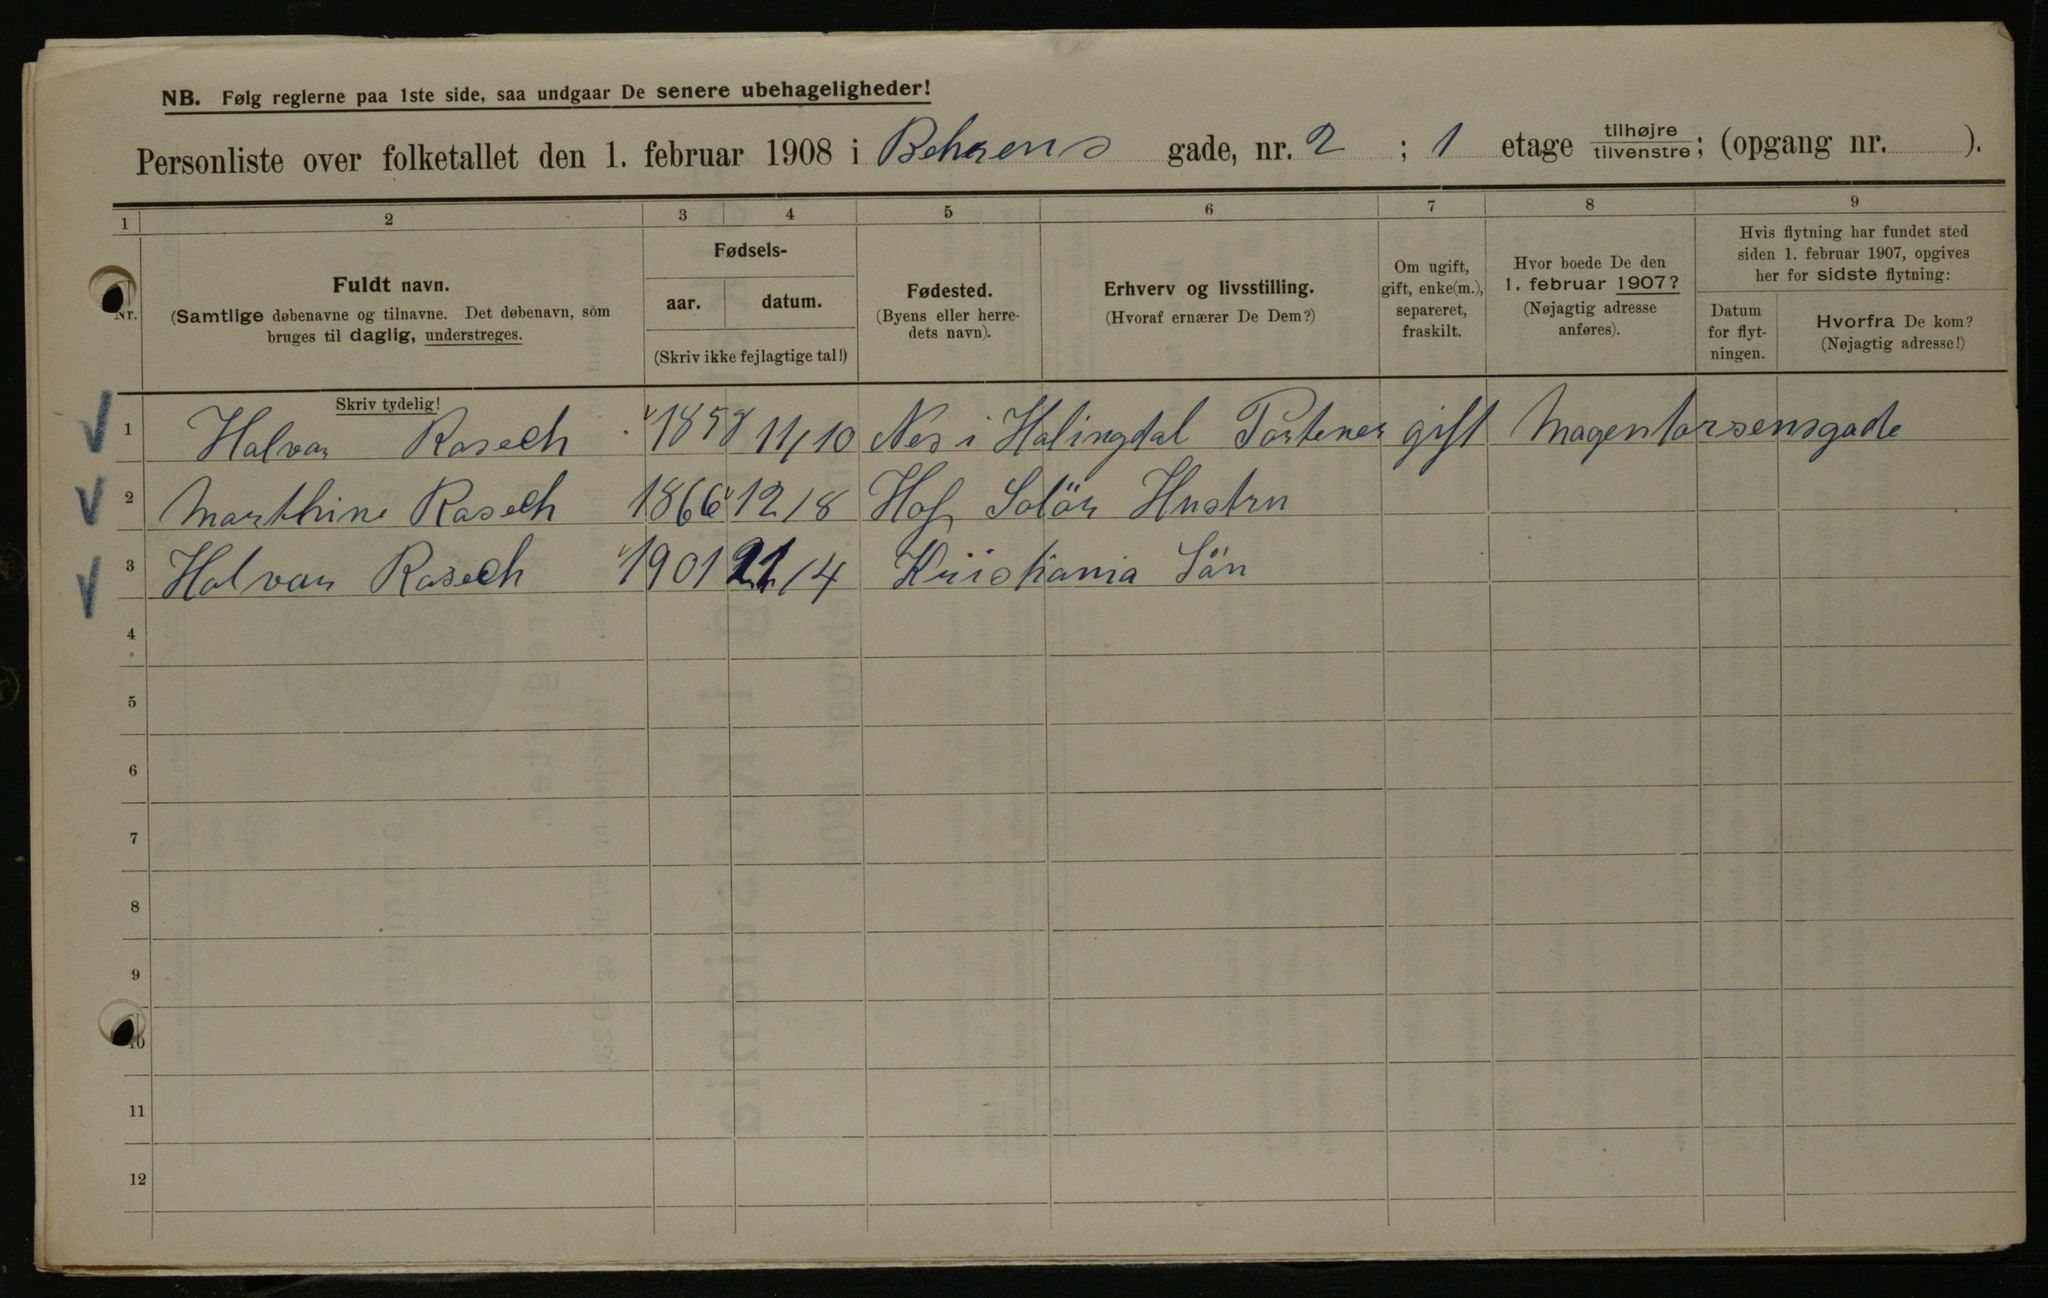 NB. Følg reglerne paa 1ste side, saa undgaar De senere ubehageligheder!
Personliste over folketallet den 1. februar 1908 i Behrens gade, nr. 2 ; 1 etage tilhøjre/tilvenstre; (opgang nr. ).
1 2 3 4 5 6 7 8 9
Nr.
Fuldt navn.
(Samtlige døbenavne og tilnavne. Det døbenavn, som
bruges til daglig, understreges.
Skriv tydelig!
Fødsels-
aar. datum.
(Skriv ikke fejlagtige tal!)
Fødested.
(Byens eller herre-
dets navn).
Erhverv og livsstilling.
(Hvoraf ernærer De Dem?)
Om ugift,
gift, enke(m.),
separeret,
fraskilt.
Hvor boede De den
1. februar 1907?
(Nøjagtig adresse
anføres).
Hvis flytning har fundet sted
siden 1. februar 1907, opgives
her for sidste flytning:
Datum
for flyt-
ningen.
Hvorfra De kom?
(Nøjagtig adresse!)
1 Halvar Rasech 1858 11/10 Nes i Halingdal Portener gift
2 Marthine Rasech 1866 12/8 Hof Solör Hustru
3 Halvar Rasech 1901 21/4 Kristiania Sön
4
5
6
7
8
9
10
11
12